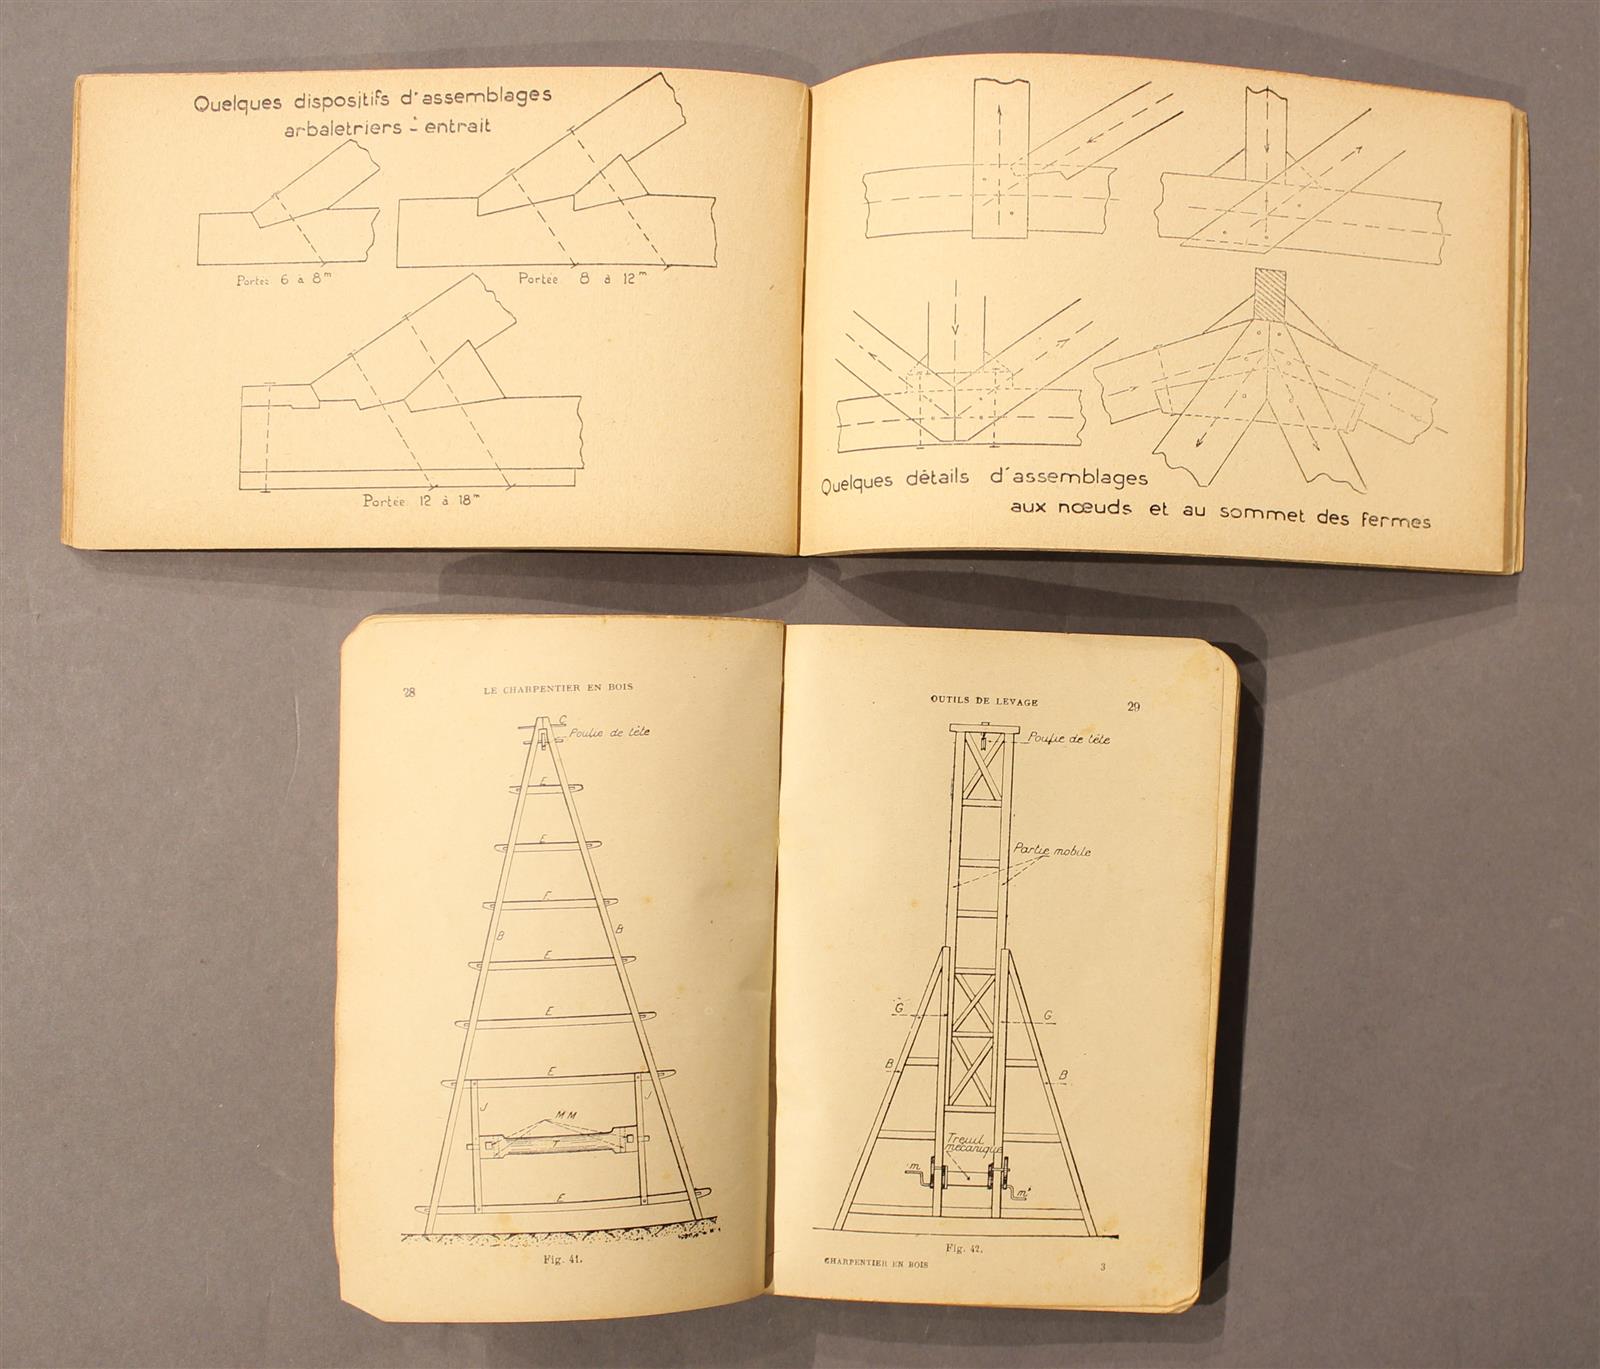 Quelques dispositifs d'assemblages
arbaletriers - entrait
Portée 6 à 8m
Portée 8 à 12m
Portée 12 à 18m
Quelques détails d'assemblages
aux nœuds et au sommet des fermes
28 LE CHARPENTIER EN BOIS
C
Poulie de tête
E
E
E
B B
E
E
E
J J
MM
T
E
Fig. 41.
OUTILS DE LEVAGE 29
Poulie de tête
Partie mobile
G G
B B
Treuil
mécanique
m m'
Fig. 42.
CHARPENTIER EN BOIS 3